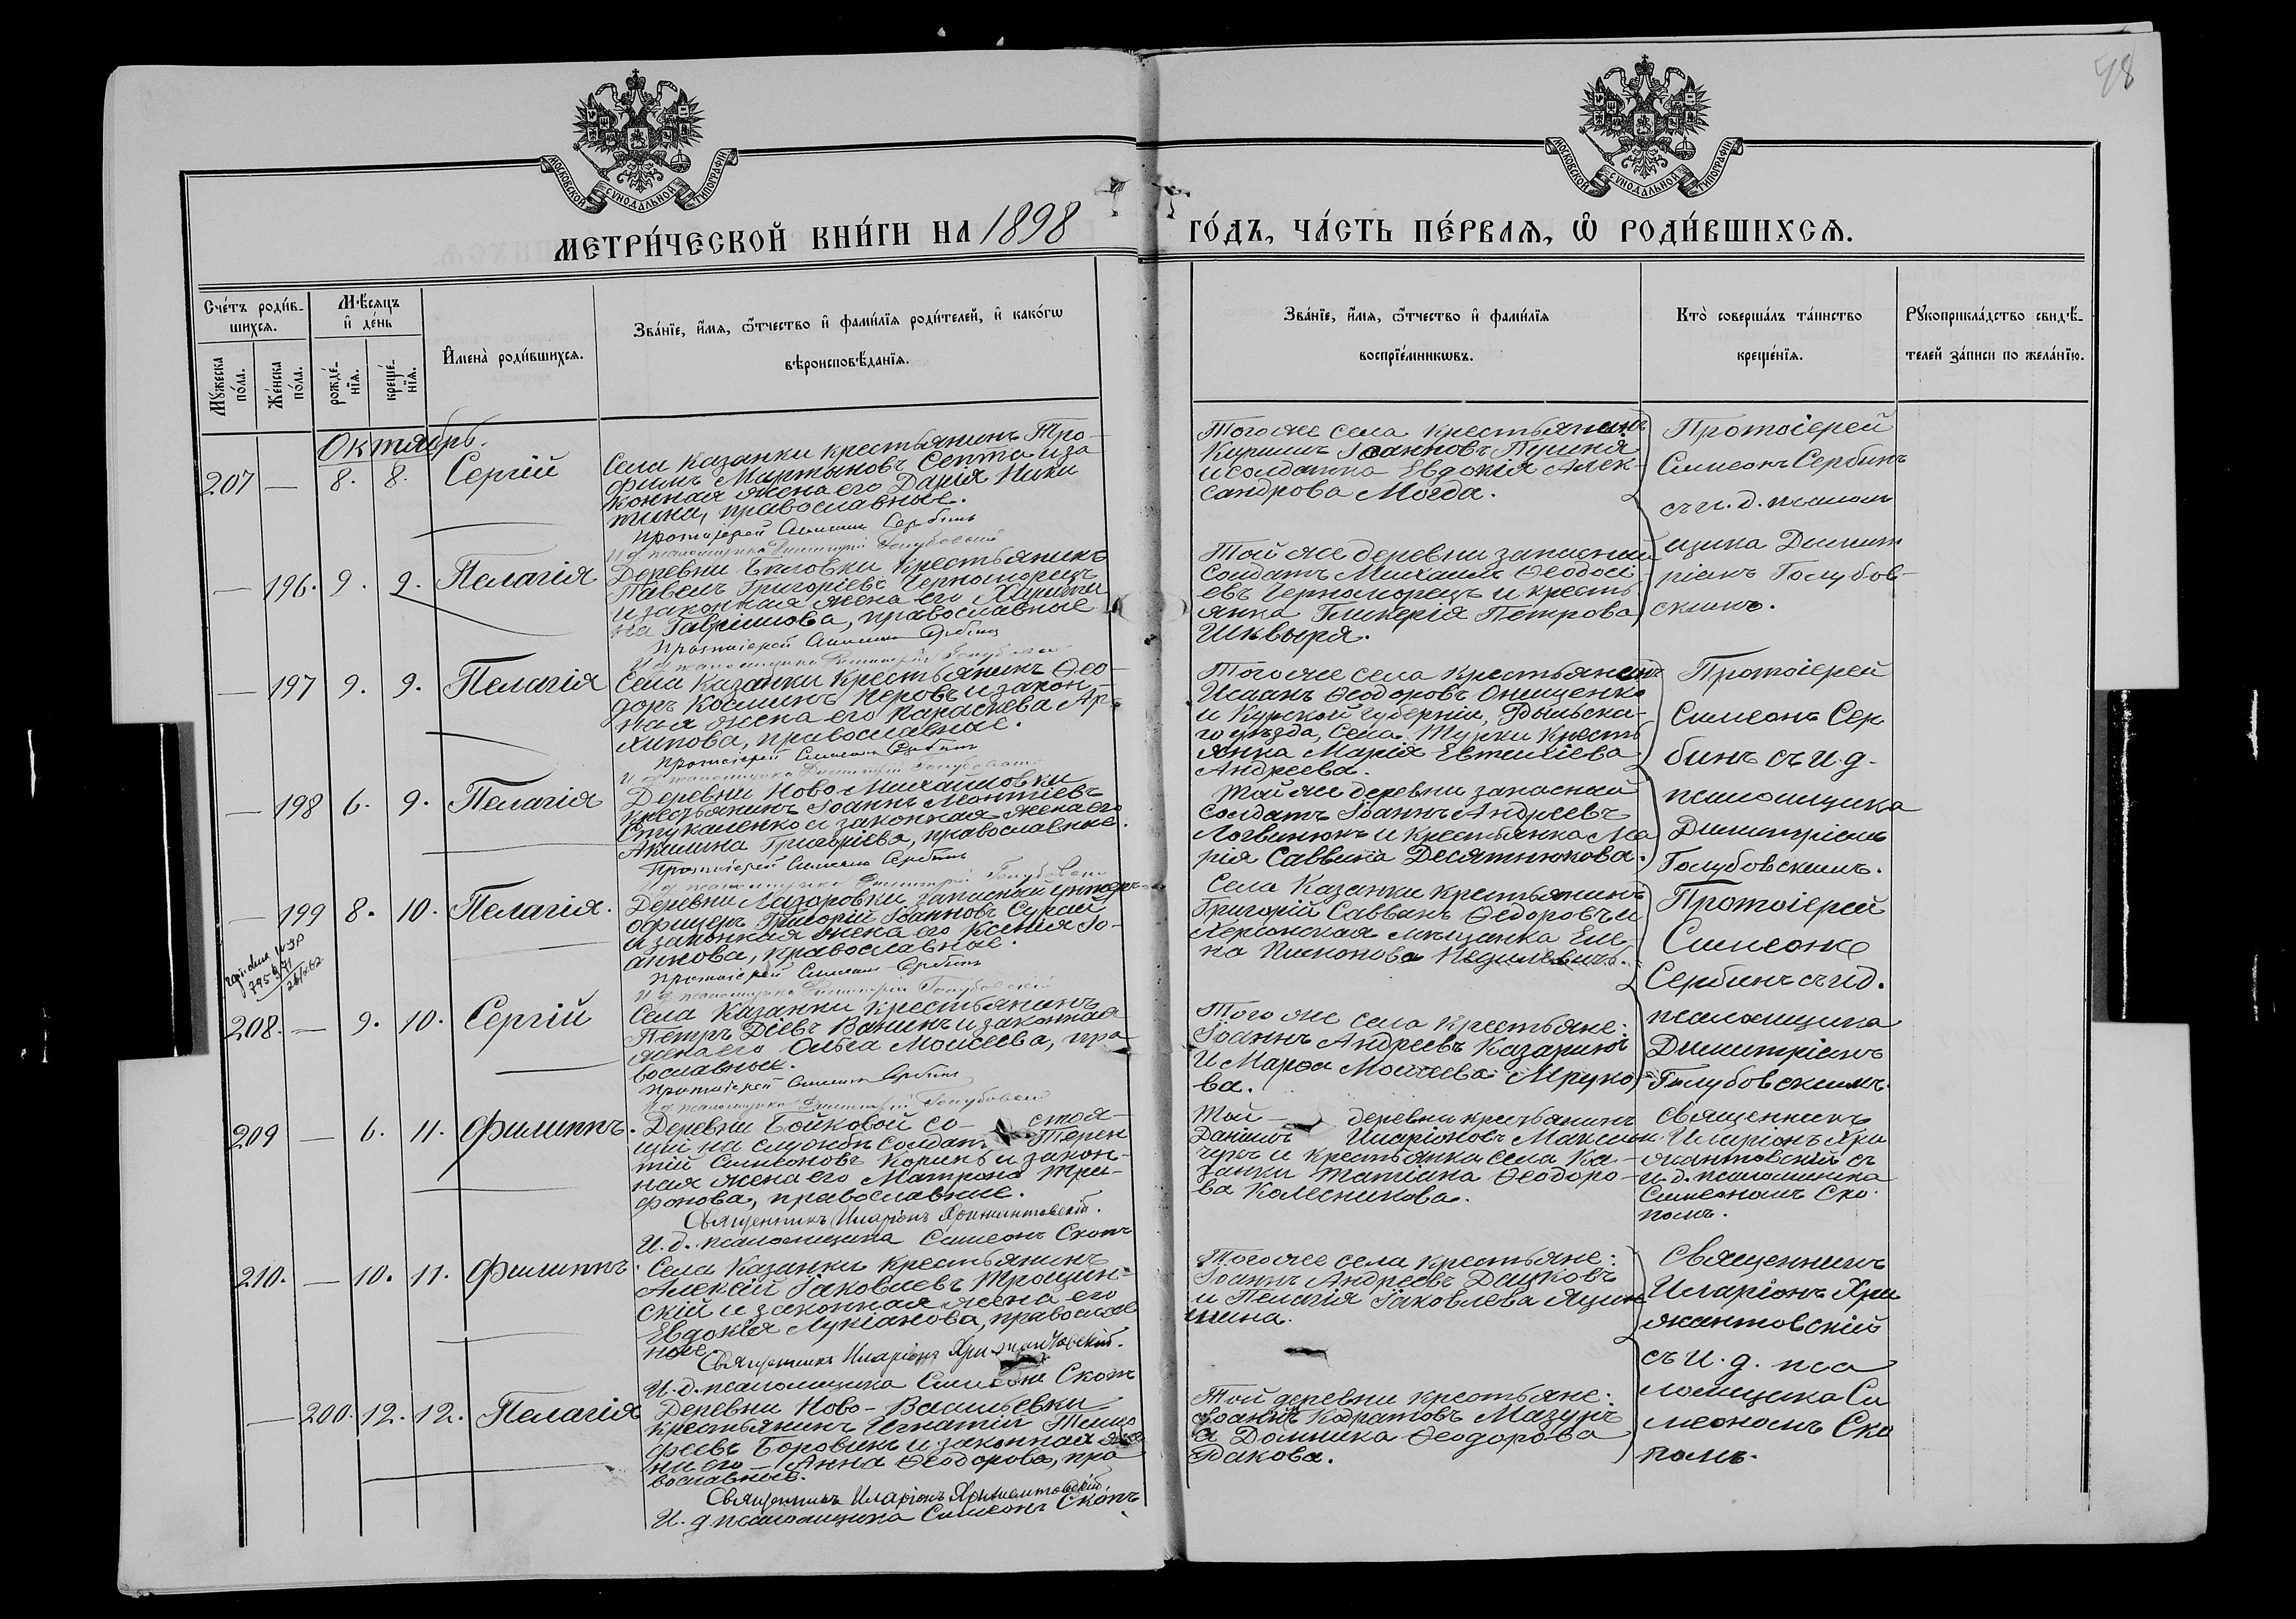 48
МОСКОВСКОЙ СѴНОДАЛЬНОЙ ТИПОГРАФІИ
МОСКОВСКОЙ СѴНОДАЛЬНОЙ ТИПОГРАФІИ
МЕТРИ́ЧЕСКОЙ КНИ́ГИ НА 1898 ГО́ДЪ, ЧА́СТЬ ПЕ́РВАѦ, Ѡ҆ РОДИ́ВШИХСѦ.
Сче́тъ роди́в-
шихсѧ.
Мꙋжеска по́ла.
Же́нска по́ла.
Мѣ́сѧцъ
и҆ де́нь
рожде́-
нїѧ.
креще́-
нїѧ.
И҆мена̀ роди́вшихсѧ.
Зва́нїе, и҆́мѧ, ѻ҆́тчество и҆ фами́лїѧ роди́телей, и҆ како́гѡ
вѣроисповѣ́данїѧ.
Зва́нїе, и҆́мѧ, ѻ҆́тчество и҆ фами́лїѧ
воспрїе́мникѡвъ.
Кто̀ соверша́лъ та́инство
креще́нїѧ.
Рꙋкоприкла́дство свидѣ́-
телей за́писи по жела́нїю.
Октябрь.
207 — 8. 8. Сергій
Села Казанки крестьянинъ Тро-
фимъ Мартыновъ Септа и за
конная жена его Дарія Ники
тина, православные.
Протоіерей Симеонъ Сербинъ
И д псаломщика Димитрій Голубовскій
Того же села крестьянинъ
Кириллъ Іоанновъ
и солдатка Евдокія Алек-
сандрова Могда.
Протоіерей
Симеонъ Сербинъ
съ и. д. псалом
щика Димит
ріемъ Голубов-
скимъ.
— 196. 9. 9. Пелагія
Деревни Бѣловки крестьянинъ
Павелъ Григоріевъ Черноморецъ
и законная жена его Христи
на Гавріилова, православные
Протоіерей Симеонъ Сербинъ
И д псаломщика Димитрій Голубовскій
Той же деревни запасный
солдатъ Михаилъ Ѳеодосі
евъ Черноморецъ и кресть
янка Гликерія Петрова
Шквыря.
— 197 9. 9. Пелагія
Села Казанки крестьянинъ Ѳео-
доръ Косминъ Перовъ и закон
ная жена его Параскева Ар-
хипова, православные.
Протоіерей Симеонъ Сербинъ
И д псаломщика Димитрій Голубовскій
Того же села крестьянинъ
Исаакъ Ѳеодоровъ Онищенко
и Курской губерніи, Рыльска-
го уѣзда, села Турки кресть
янка Марія Евтихіева
Андреева.
Протоіерей
Симеонъ Сер
бинъ съ и. д.
псаломщика
Димитріемъ
Голубовскимъ.
— 198 6. 9. Пелагія
Деревни Ново Михайловки
крестьянинъ Іоаннъ Леонтіевъ
Стукаленко и законная жена его
Акилина Григоріева, православные.
Протоіерей Симеонъ Сербинъ
И д псаломщика Димитрій Голубовскій
Той же деревни запасный
солдатъ Іоаннъ Андреевъ
Логвинюкъ и крестьянка Ма
рія Саввина Десятнюкова.
— 199 8. 10. Пелагія.
Деревни Лазаровки запасный унтеръ-
офицеръ Григорій Іоанновъ Сукай
и законная жена его Ксенія Іо-
аннова, православные.
Протоіерей Симеонъ Сербинъ
И д псаломщика Димитрій Голубовскій
Села Казанки крестьянинъ
Григорій Саввинъ Ѳедоровъ и
Херсонская мѣщанка Еле
на Пименова
Протоіерей
Симеонъ
Сербинъ съ и д.
псаломщика
Димитріемъ
Голубовскимъ.
208. — 9. 10. Сергій
Села Казанки крестьянинъ
Петръ Діевъ Ванинъ и законная
жена его Ольга Моисеева, пра
вославные.
Протоіерей Симеонъ Сербинъ
И д псаломщика Димитрій Голубовскій
Того же села крестьяне:
Іоаннъ Андреевъ Казаринъ
и Марѳа Моисеева Мруко
ва.
209 — 6. 11. Филиппъ.
Деревни Бойковой со- стоя-
щій на службѣ солдатъ Терен
тій Симеоновъ Коринь и закон-
ная жена его Матрона Три-
фонова, православные.
Священникъ Иларіонъ Хрижантовскій.
И. д. псаломщика Симеонъ Скопъ
Той — деревни крестьянинъ
Даніилъ Иларіоновъ Максим
чукъ и крестьянка села Ка-
занки Татіана Ѳеодоро-
ва Колесникова.
Священникъ
Иларіонъ Хри
жантовскій съ
и. д. псаломщика
Симеономъ Ско
помъ.
210. — 10. 11. Филиппъ.
Села Казанки крестьянинъ
Алексій Іаковлевъ Троцин-
скій и законная жена его
Евдокія Лукіанова, православ
ные.
Священникъ Иларіонъ Хрижантовскій.
И. д. псаломщика Симеонъ Скопъ
Того же села крестьяне:
Іоаннъ Андреевъ Дацковъ
и Пелагія Іаковлева Яцин
шина.
Священникъ
Иларіонъ Хри
жантовскій
съ и. д. пса
ломщика Си
меономъ Ско
помъ.
— 200. 12. 12. Пелагія
Деревни Ново-Васильевки
крестьянинъ Игнатій Тимо
феевъ Боровикъ и законная же
на его — Анна Ѳеодорова, пра
вославные.
Священникъ Иларіонъ Хрижантовскій.
И. д псаломщика Симеонъ Скопъ
Той деревни крестьяне:
Іоаннъ Кодратовъ Мазуръ
и Домника Ѳеодорова
Дакова.